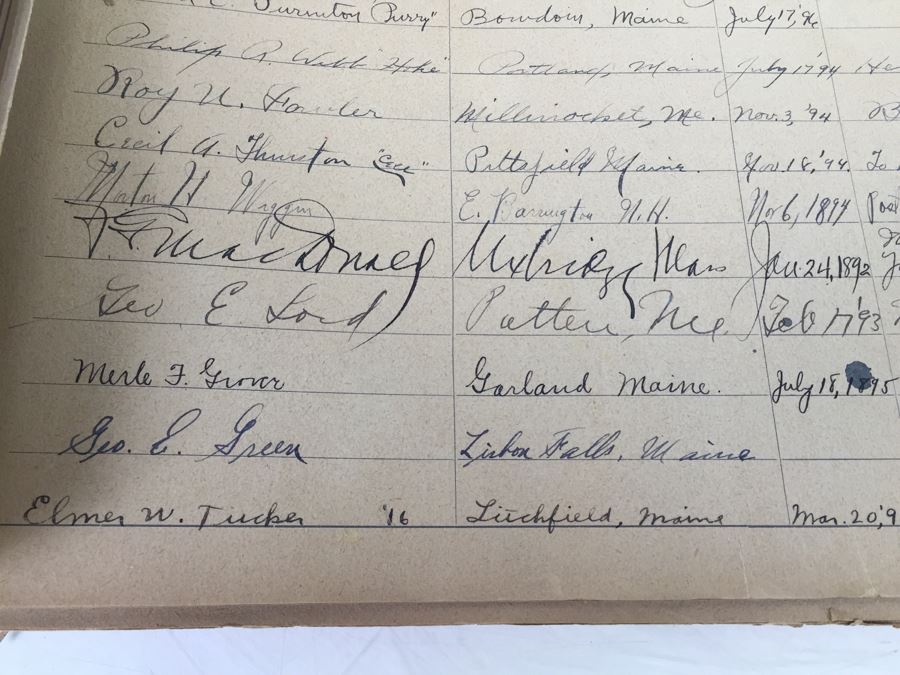 C. Purinton "Purry" Bowdoin, Maine July 17, '96
Philip A. Webb "Hoke" Portland, Maine July 17 '94 He
Roy U. Fowler Millinocket, Me. Nov. 3, '94
Cecil A. Thurston "Cece" Pittsfield Maine. Nov. 18, '94. To
Morton H Wiggin E. Barrington N. H. Nov 6, 1894
F. MacDonald Uxbridge Mass Jan. 24, 1892
Geo E. Lord Patten, Me. Feb 17 '93
Merle F. Grover Garland Maine. July 18, 1895
Geo. E. Green Lisbon Falls, Maine
Elmer W. Tucker '16 Litchfield, Maine Mar. 20, '9